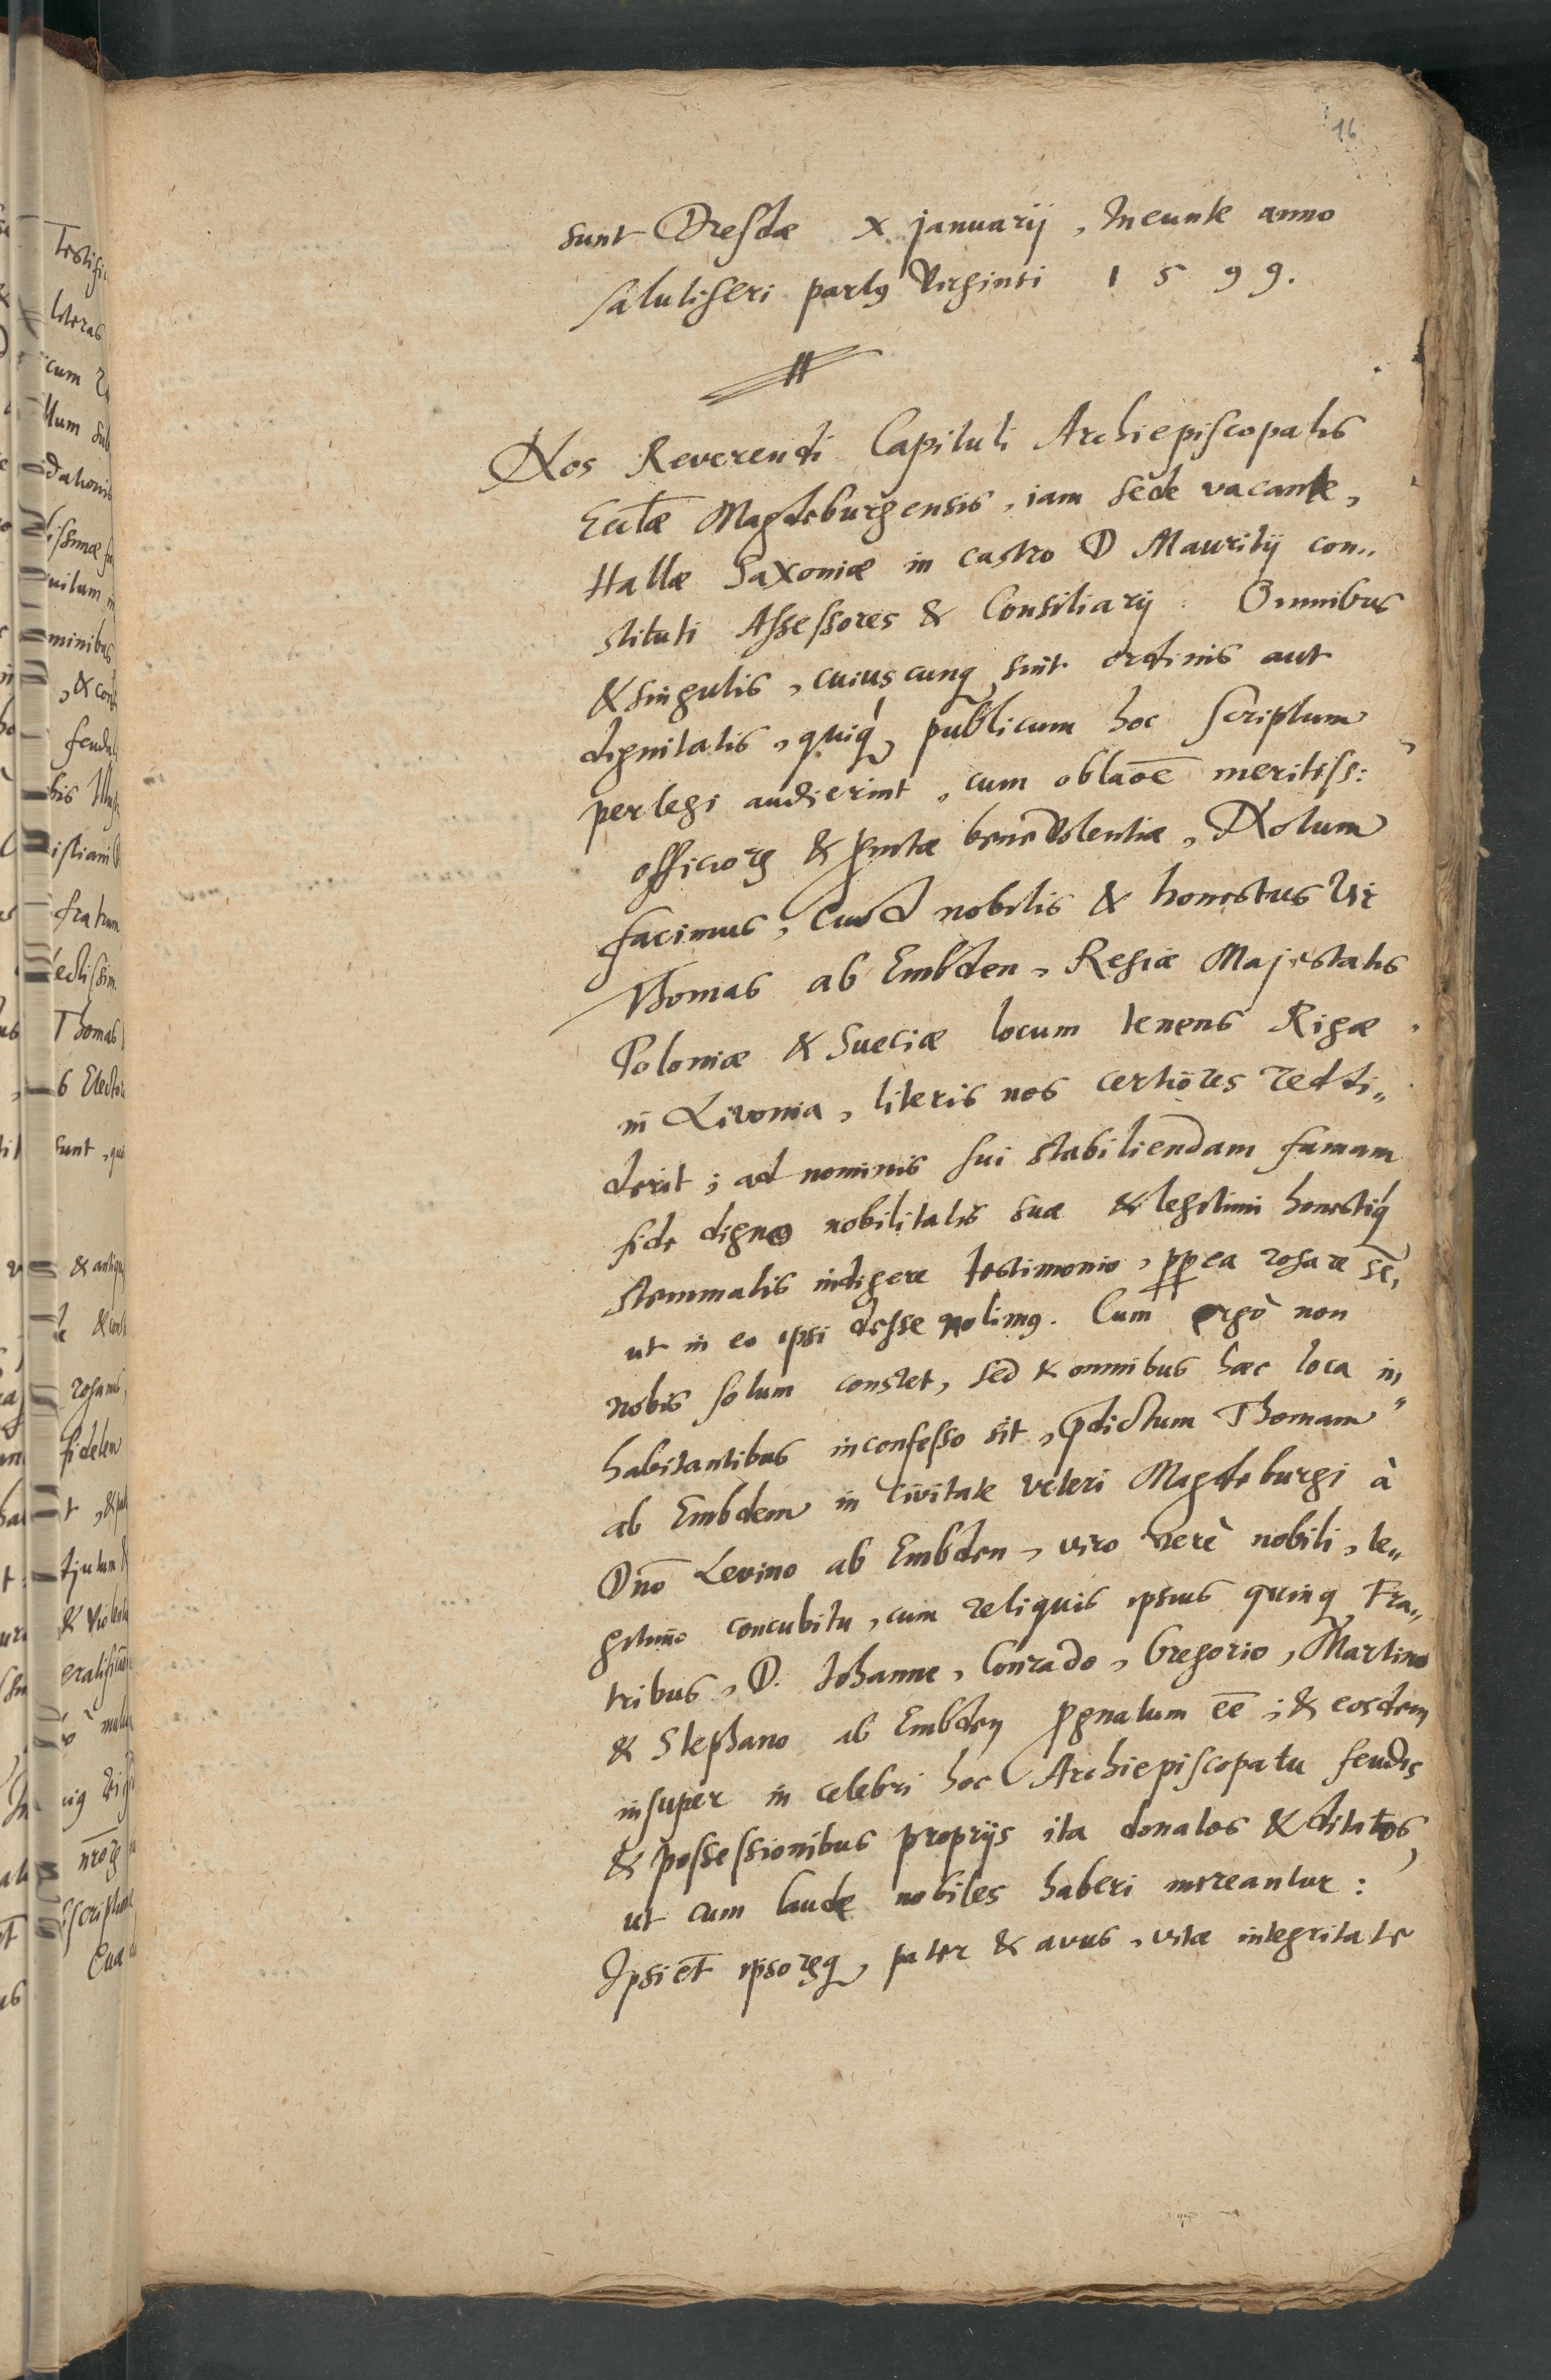 16
sunt Dresdæ x januarij, Ineunte anno
salutiferi partus Virginei 1599.
Nos Reverendi Capituli Archiepiscopalis
Eccłæ Magdeburgensis, iam sede vacante,
Hallæ Saxoniæ in castro D Mauritij con„
stituti Assessores & Consiliarij : Omnibus
& singulis, cuiuscunq sint ordinis aut
dignitatis, quiq publicum hoc scriptum
perlegi audierint, cum oblaōē meritiss:
officiorꝫ & benevolentiæ, Notum
facimus, Quod nobilis & honestus Vir
Thomas ab Embden, Regiæ Majestatis
Poloniæ & Sueciæ locum tenens Rigæ
in Livonia, literis nos certiores reddi„
derit; ad nominis sui stabiliendam famam
fide digno nobilitatis suæ & legitimi honestiq
stemmatis indigere testimonio, ꝓꝓea rogare sē,
ut in eo ipsi deesse nolimꝰ. Cum ergò non
nobis solum constet, sed & omnibus hæc loca in„
habitantibus in confesso sit, p̄dictum Thomam
ab Embdem in Civitate veteri Magdeburgi à
Dnō Levino ab Embden, viro verè nobili, le„
gitimo concubitu, cum reliquis ipsius quinq Fra„
tribus, D. Johanne, Conrado, Gregorio, Martino
& Stephano ab Embden ꝓgnatum eē; & eosdem
insuper in celebri hoc Archiepiscopatu feudis
& possessionibus proprijs ita donatos & ditatos,
ut cum laude nobiles haberi mereantur :
Ipsi et̄ ipsorꝫq, pater & avus, vitæ integritate